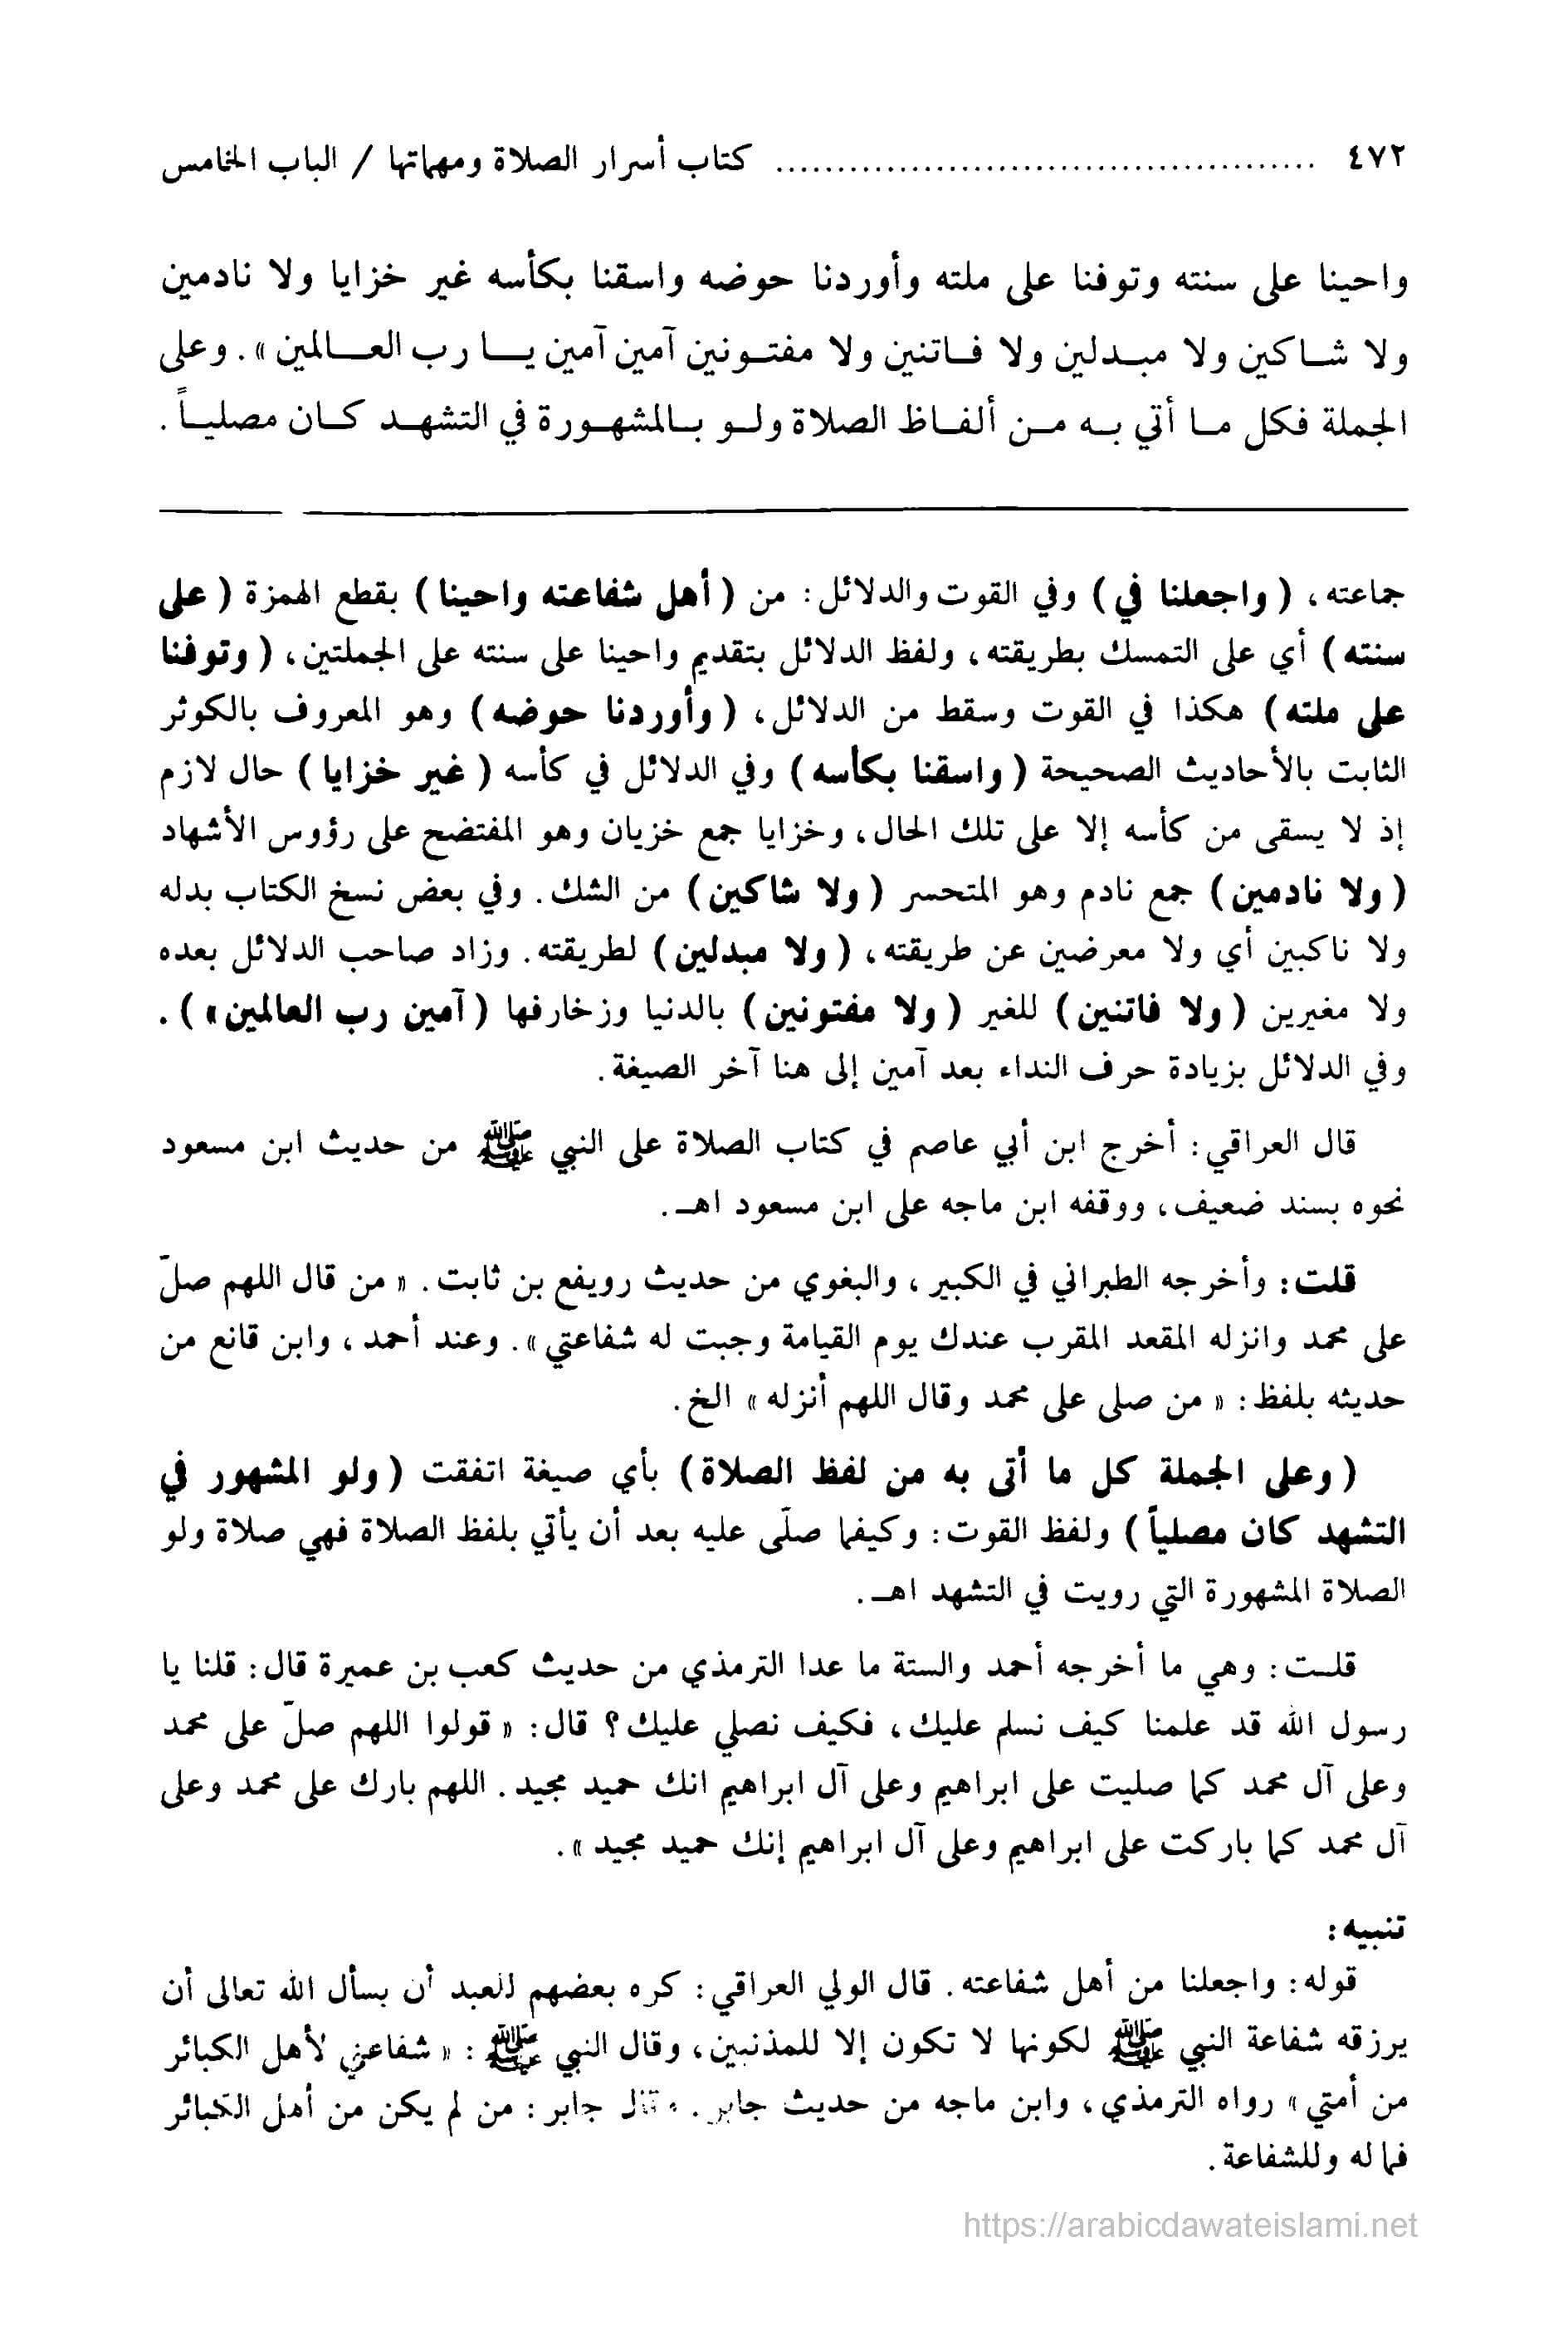 ٤٧٢ ............................................ كتاب أسرار الصلاة ومهماتها / الباب الخامس
واحينا على سنته وتوفنا على ملته وأوردنا حوضه واسقنا بكأسه غير خزايا ولا نادمين
ولا شاكين ولا مبدلين ولا فاتنين ولا مفتونين آمين آمين يا رب العالمين » . وعلى
الجملة فكل ما أتي به من ألفاظ الصلاة ولو بالمشهورة في التشهد كان مصلياً .
جماعته ، ( واجعلنا في ) وفي القوت والدلائل : من ( أهل شفاعته واحينا ) بقطع الهمزة ( على
سنته ) أي على التمسك بطريقته ، ولفظ الدلائل بتقديم واحينا على سنته على الجملتين ، ( وتوفنا
على ملته ) هكذا في القوت وسقط من الدلائل ، ( وأوردنا حوضه ) وهو المعروف بالكوثر
الثابت بالأحاديث الصحيحة ( واسقنا بكأسه ) وفي الدلائل في كأسه ( غير خزايا ) حال لازم
إذ لا يسقى من كأسه إلا على تلك الحال ، وخزايا جمع خزيان وهو المفتضح على رؤوس الأشهاد
( ولا نادمين ) جمع نادم وهو المتحسر ( ولا شاكين ) من الشك . وفي بعض نسخ الكتاب بدله
ولا ناكبين أي ولا معرضين عن طريقته ، ( ولا مبدلين ) لطريقته . وزاد صاحب الدلائل بعده
ولا مغيرين ( ولا فاتنين ) للغير ( ولا مفتونين ) بالدنيا وزخارفها ( آمين رب العالمين » ) .
وفي الدلائل بزيادة حرف النداء بعد آمين إلى هنا آخر الصيغة .
قال العراقي : أخرج ابن أبي عاصم في كتاب الصلاة على النبي ﷺ من حديث ابن مسعود
نحوه بسند ضعيف ، ووقفه ابن ماجه على ابن مسعود اهـ .
قلت : وأخرجه الطبراني في الكبير ، والبغوي من حديث رويفع بن ثابت . « من قال اللهم صلّ
على محمد وانزله المقعد المقرب عندك يوم القيامة وجبت له شفاعتي » . وعند أحمد ، وابن قانع من
حديثه بلفظ : « من صلى على محمد وقال اللهم أنزله » الخ .
( وعلى الجملة كل ما أتى به من لفظ الصلاة ) بأي صيغة اتفقت ( ولو المشهور في
التشهد كان مصلياً ) ولفظ القوت : وكيفما صلّى عليه بعد أن يأتي بلفظ الصلاة فهي صلاة ولو
الصلاة المشهورة التي رويت في التشهد اهـ .
قلت : وهي ما أخرجه أحمد والستة ما عدا الترمذي من حديث كعب بن عميرة قال : قلنا يا
رسول الله قد علمنا كيف نسلم عليك ، فكيف نصلي عليك ؟ قال : « قولوا اللهم صلّ على محمد
وعلى آل محمد كما صليت على ابراهيم وعلى آل ابراهيم انك حميد مجيد . اللهم بارك على محمد وعلى
آل محمد كما باركت على ابراهيم وعلى آل ابراهيم إنك حميد مجيد » .
تنبيه :
قوله : واجعلنا من أهل شفاعته . قال الولي العراقي : كره بعضهم للعبد أن يسأل الله تعالى أن
يرزقه شفاعة النبي ﷺ لكونها لا تكون إلا للمذنبين ، وقال النبي ﷺ : « شفاعتي لأهل الكبائر
من أمتي » رواه الترمذي ، وابن ماجه من حديث جابر . قال جابر : من لم يكن من أهل الكبائر
فما له وللشفاعة .
https://arabicdawateislami.net